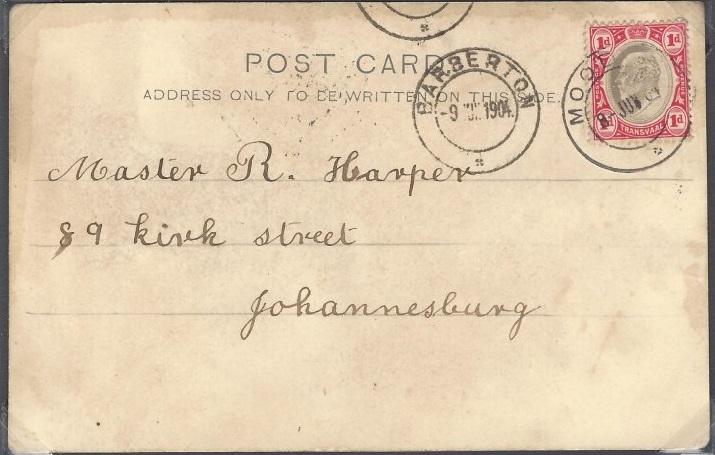 POST CARD
ADDRESS ONLY TO BE WRITTEN ON THIS SIDE.
BARBERTON
1904
1d 1d
TRANSVAAL
1d 1d
Master R. Harper
89 kirk street
Johannesburg